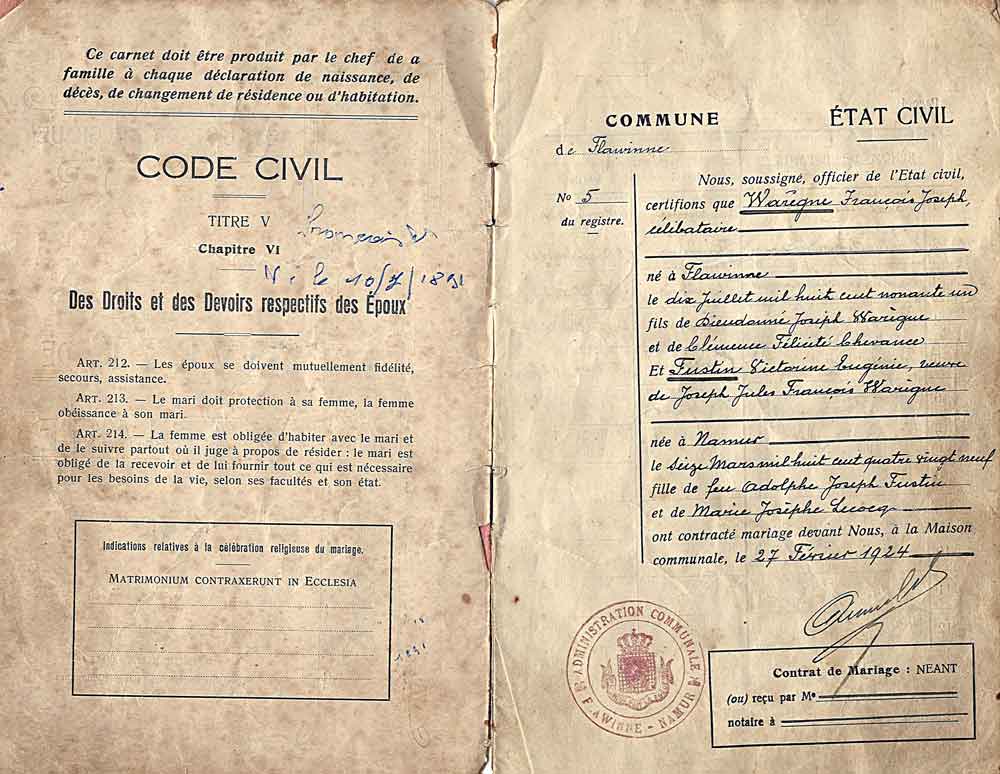 Ce carnet doit être produit par le chef de a
famille à chaque déclaration de naissance, de
décès, de changement de résidence ou d'habitation.
CODE CIVIL
TITRE V
Chapitre VI
N. le 10/7/1891
Des Droits et des Devoirs respectifs des Époux
ART. 212. — Les époux se doivent mutuellement fidélité,
secours, assistance.
ART. 213. — Le mari doit protection à sa femme, la femme
obéissance à son mari.
ART. 214. — La femme est obligée d'habiter avec le mari et
de le suivre partout où il juge à propos de résider : le mari est
obligé de la recevoir et de lui fournir tout ce qui est nécessaire
pour les besoins de la vie, selon ses facultés et son état.
Indications relatives à la célébration religieuse du mariage.
MATRIMONIUM CONTRAXERUNT IN ECCLESIA
1891
COMMUNE
de Flawinne
ÉTAT CIVIL
No 5
du registre.
Nous, soussigné, officier de l'Etat civil,
certifions que Warègne François Joseph,
célibataire
né à Flawinne
le dix Juillet mil huit cent nonante un
fils de Dieudonné Joseph Warègne
et de Clémence Félicité Chevance
Et Fustin Victorine Eugénie, veuve
de Joseph Jules François Warègne
née à Namur
le seize Mars mil huit cent quatre vingt neuf
fille de feu Adolphe Joseph Fustin
et de Marie Josèphe Lecocq
ont contracté mariage devant Nous, à la Maison
communale, le 27 Février 1924
ADMINISTRATION COMMUNALE
FLAWINNE - NAMUR
Contrat de Mariage : NEANT
(ou) reçu par Me
notaire à